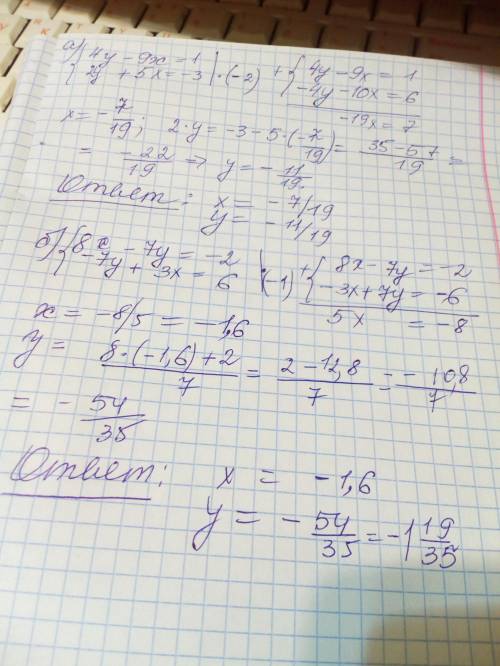 а) { 4y - 9x = 1
2y + 5x = -3 | · (-2) + { 4y - 9x = 1
-4y - 10x = 6
-19x = 7
x = -7/19 ; 2·y = -3 - 5·(-7/19) = (35-57)/19 =
= -22/19 ⇒ y = -11/19.
Ответ: x = -7/19
y = -11/19
б) { 8x - 7y = -2
-7y + 3x = 6 | ·(-1) + { 8x - 7y = -2
-3x + 7y = -6
5x = -8
x = -8/5 = -1,6
y = (8·(-1,6)+2)/7 = (2-12,8)/7 = -10,8/7
= -54/35
Ответ: x = -1,6
y = -54/35 = -1 19/35